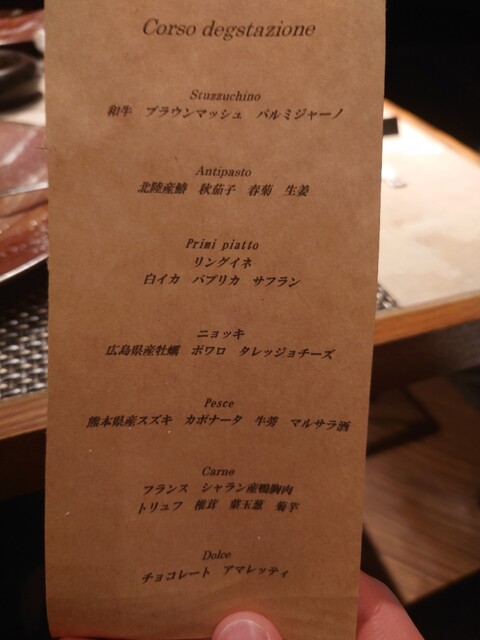 Corso degstazione
Stuzzuchino
和牛 ブラウンマッシュ パルミジャーノ
Antipasto
北陸産鰆 秋茄子 春菊 生姜
Primi piatto
リングイネ
白イカ パプリカ サフラン
ニョッキ
広島県産牡蠣 ポワロ タレッジョチーズ
Pesce
熊本県産スズキ カポナータ 牛蒡 マルサラ酒
Carne
フランス シャラン産鴨胸肉
トリュフ 椎茸 葉玉葱 菊芋
Dolce
チョコレート アマレッティ